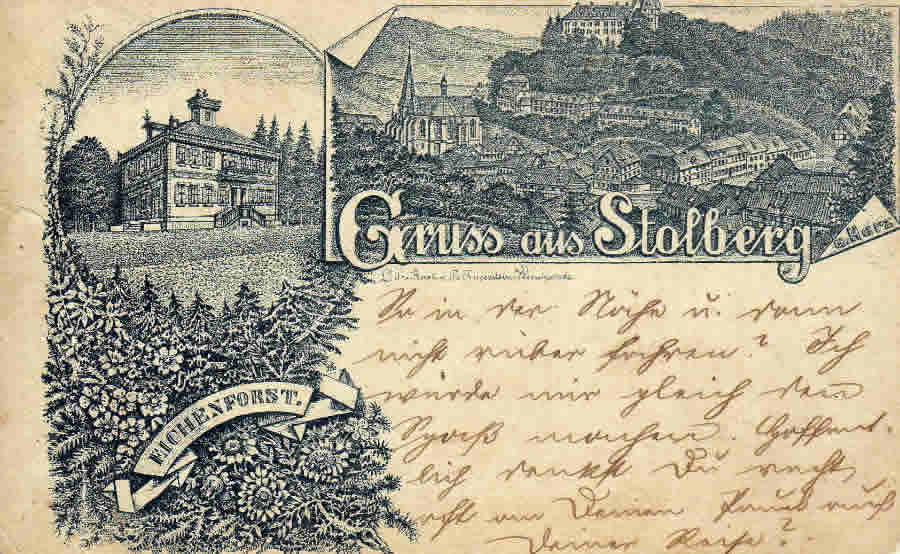 Gruss aus Stolberg
a. Harz
EICHENFORST.
So in der Nähe u. dann
nicht rüber fahren? Ich
würde mir gleich den
Spaß machen. Hoffent-
lich denkst Du recht
oft an Deinen Paul auf
Deiner Reise?